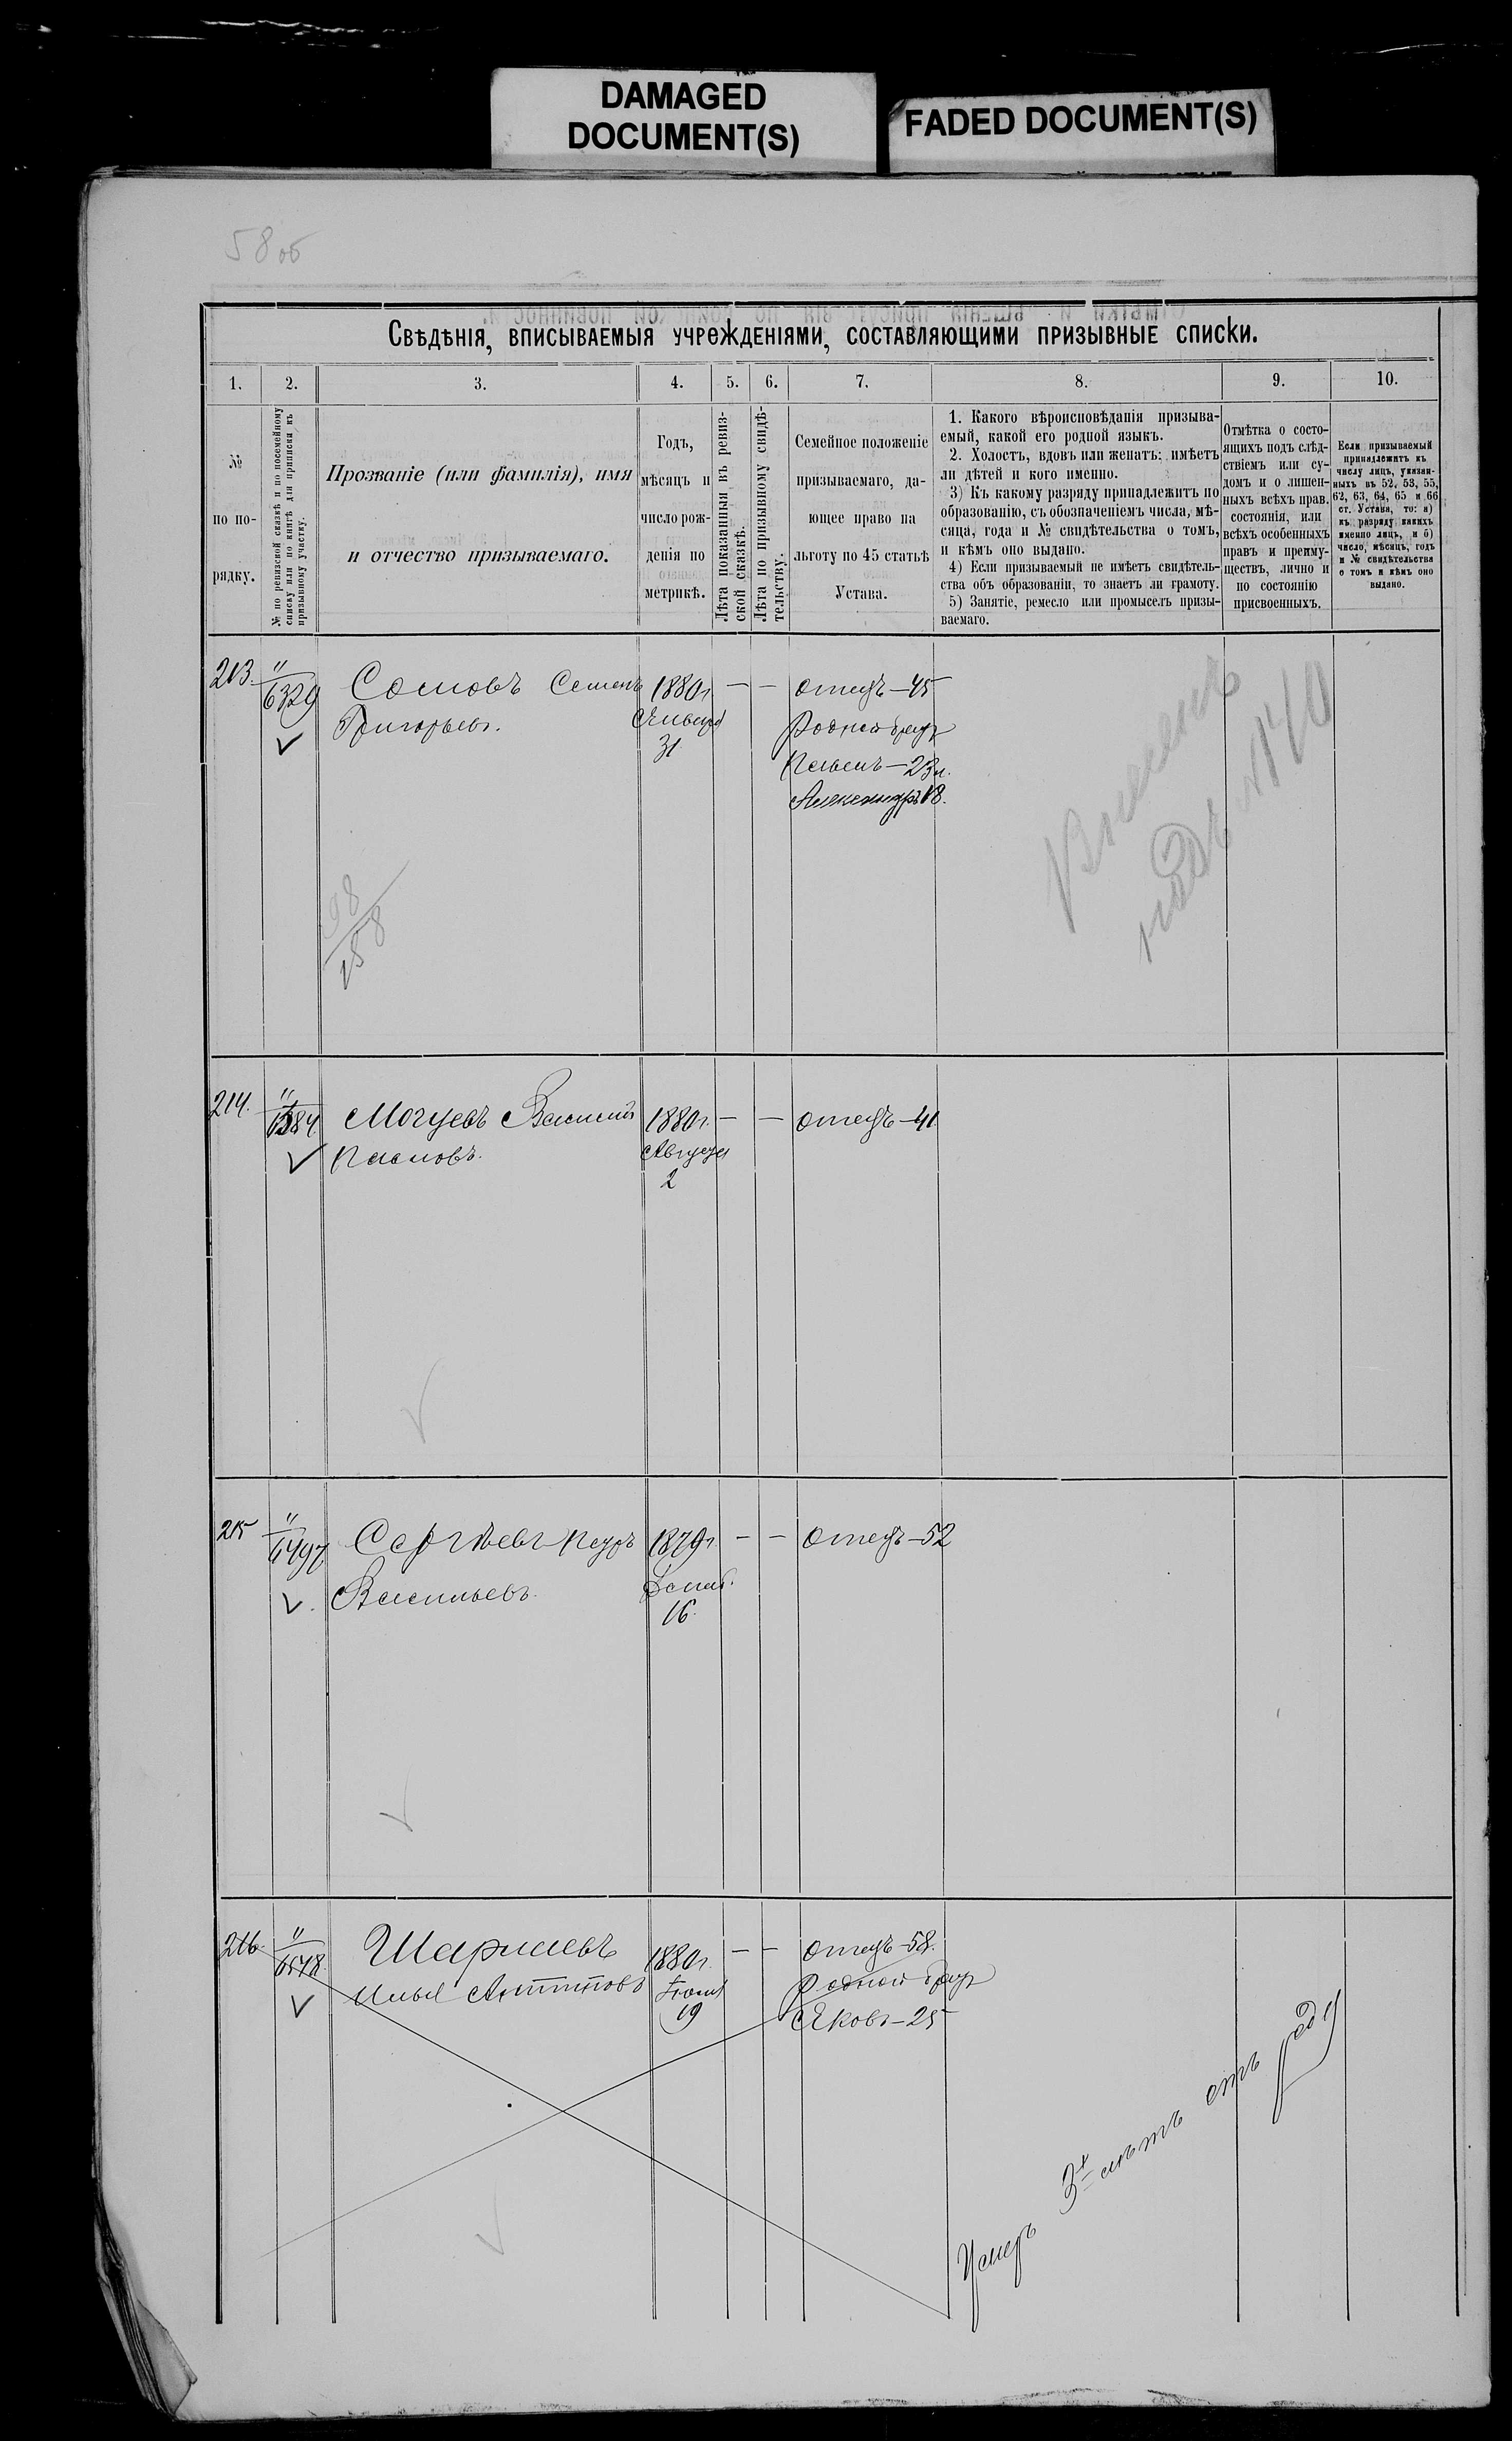 DAMAGED
DOCUMENT(S)
FADED DOCUMENT(S)
58 об
Свѣдѣнія, вписываемыя учрежденіями, составляющими призывные списки.
1.
2.
3.
4.
5.
6.
7.
8.
9.
10.
№
по по-
рядку.
№ по ревизской сказкѣ и по посемейному
списку или по книгѣ для приписки къ
призывному участку.
Прозваніе (или фамилія), имя
и отчество призываемаго.
Годъ,
мѣсяцъ и
число рож-
денія по
метрикѣ.
Лѣта показанныя въ ревиз-
ской сказкѣ.
Лѣта по призывному свидѣ-
тельству.
Семейное положеніе
призываемаго, да-
ющее право на
льготу по 45 статьѣ
Устава.
1. Какого вѣроисповѣданія призыва-
емый, какой его родной языкъ.
2. Холостъ, вдовъ или женатъ: имѣетъ
ли дѣтей и кого именно.
3) Къ какому разряду принадлежитъ по
образованію, съ обозначеніемъ числа, мѣ-
сяца, года и № свидѣтельства о томъ,
и кѣмъ оно выдано.
4) Если призываемый не имѣетъ свидѣтель-
ства объ образованіи, то знаетъ ли грамоту.
5) Занятіе, ремесло или промыселъ призы-
ваемаго.
Отмѣтка о состо-
ящихъ подъ слѣд-
ствіемъ или су-
домъ и о лишен-
ныхъ всѣхъ прав.
состоянія, или
всѣхъ особенныхъ
правъ и преиму-
ществъ, лично и
по состоянію
присвоенныхъ.
Если призываемый
принадлежитъ къ
числу лицъ, указан-
ныхъ въ 52, 53, 55,
62, 63, 64, 65 и 66
ст. Устава, то: а)
къ разряду какихъ
именно лицъ, и б)
число, мѣсяцъ, годъ
и № свидѣтельства
о томъ и кѣмъ оно
выдано.
213. "
6329 Сомовъ Семенъ 1880г. — — отецъ—45
Григорьевъ. Января Родной братъ
31 Павелъ—23л.
Александръ 18.
подъ №170
98
158
214. "
Василій 1880г. — — отецъ—41
Августа
2
215 "
6497 Сергѣевъ Петръ 1879г. — — отецъ—52
Васильевъ.
16.
216. "
6548. 1880г. — — отецъ—58.
Илья Антиповъ Родной братъ
19 Яковъ—25
Умеръ 3х лѣтъ отъ роду